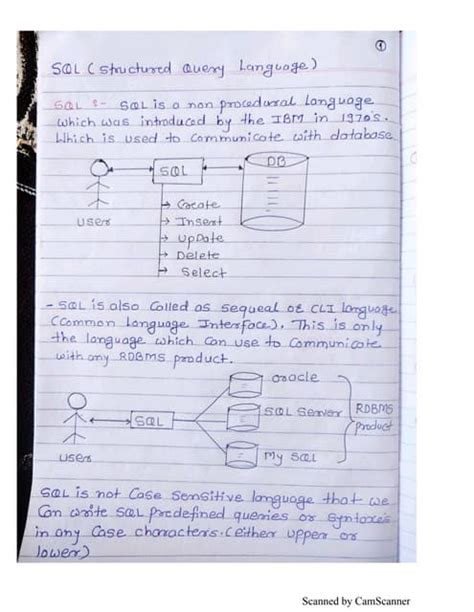 1
SQL (Structured Query Language)
SQL :- SQL is a non procedural language
which was introduced by the IBM in 1970's.
Which is used to communicate with database
SQL
DB
User
Create
Insert
UpDate
Delete
Select
- SQL is also called as sequeal or CLI language
(Common Language Interface). This is only
the language which can use to communicate
with any RDBMS product.
oracle
SQL Server
My SQL
RDBMS
product
SQL
User
SQL is not case sensitive language that we
Can write SQL predefined queries or syntaxes
in any case characters. (either upper or
lower)
Scanned by CamScanner